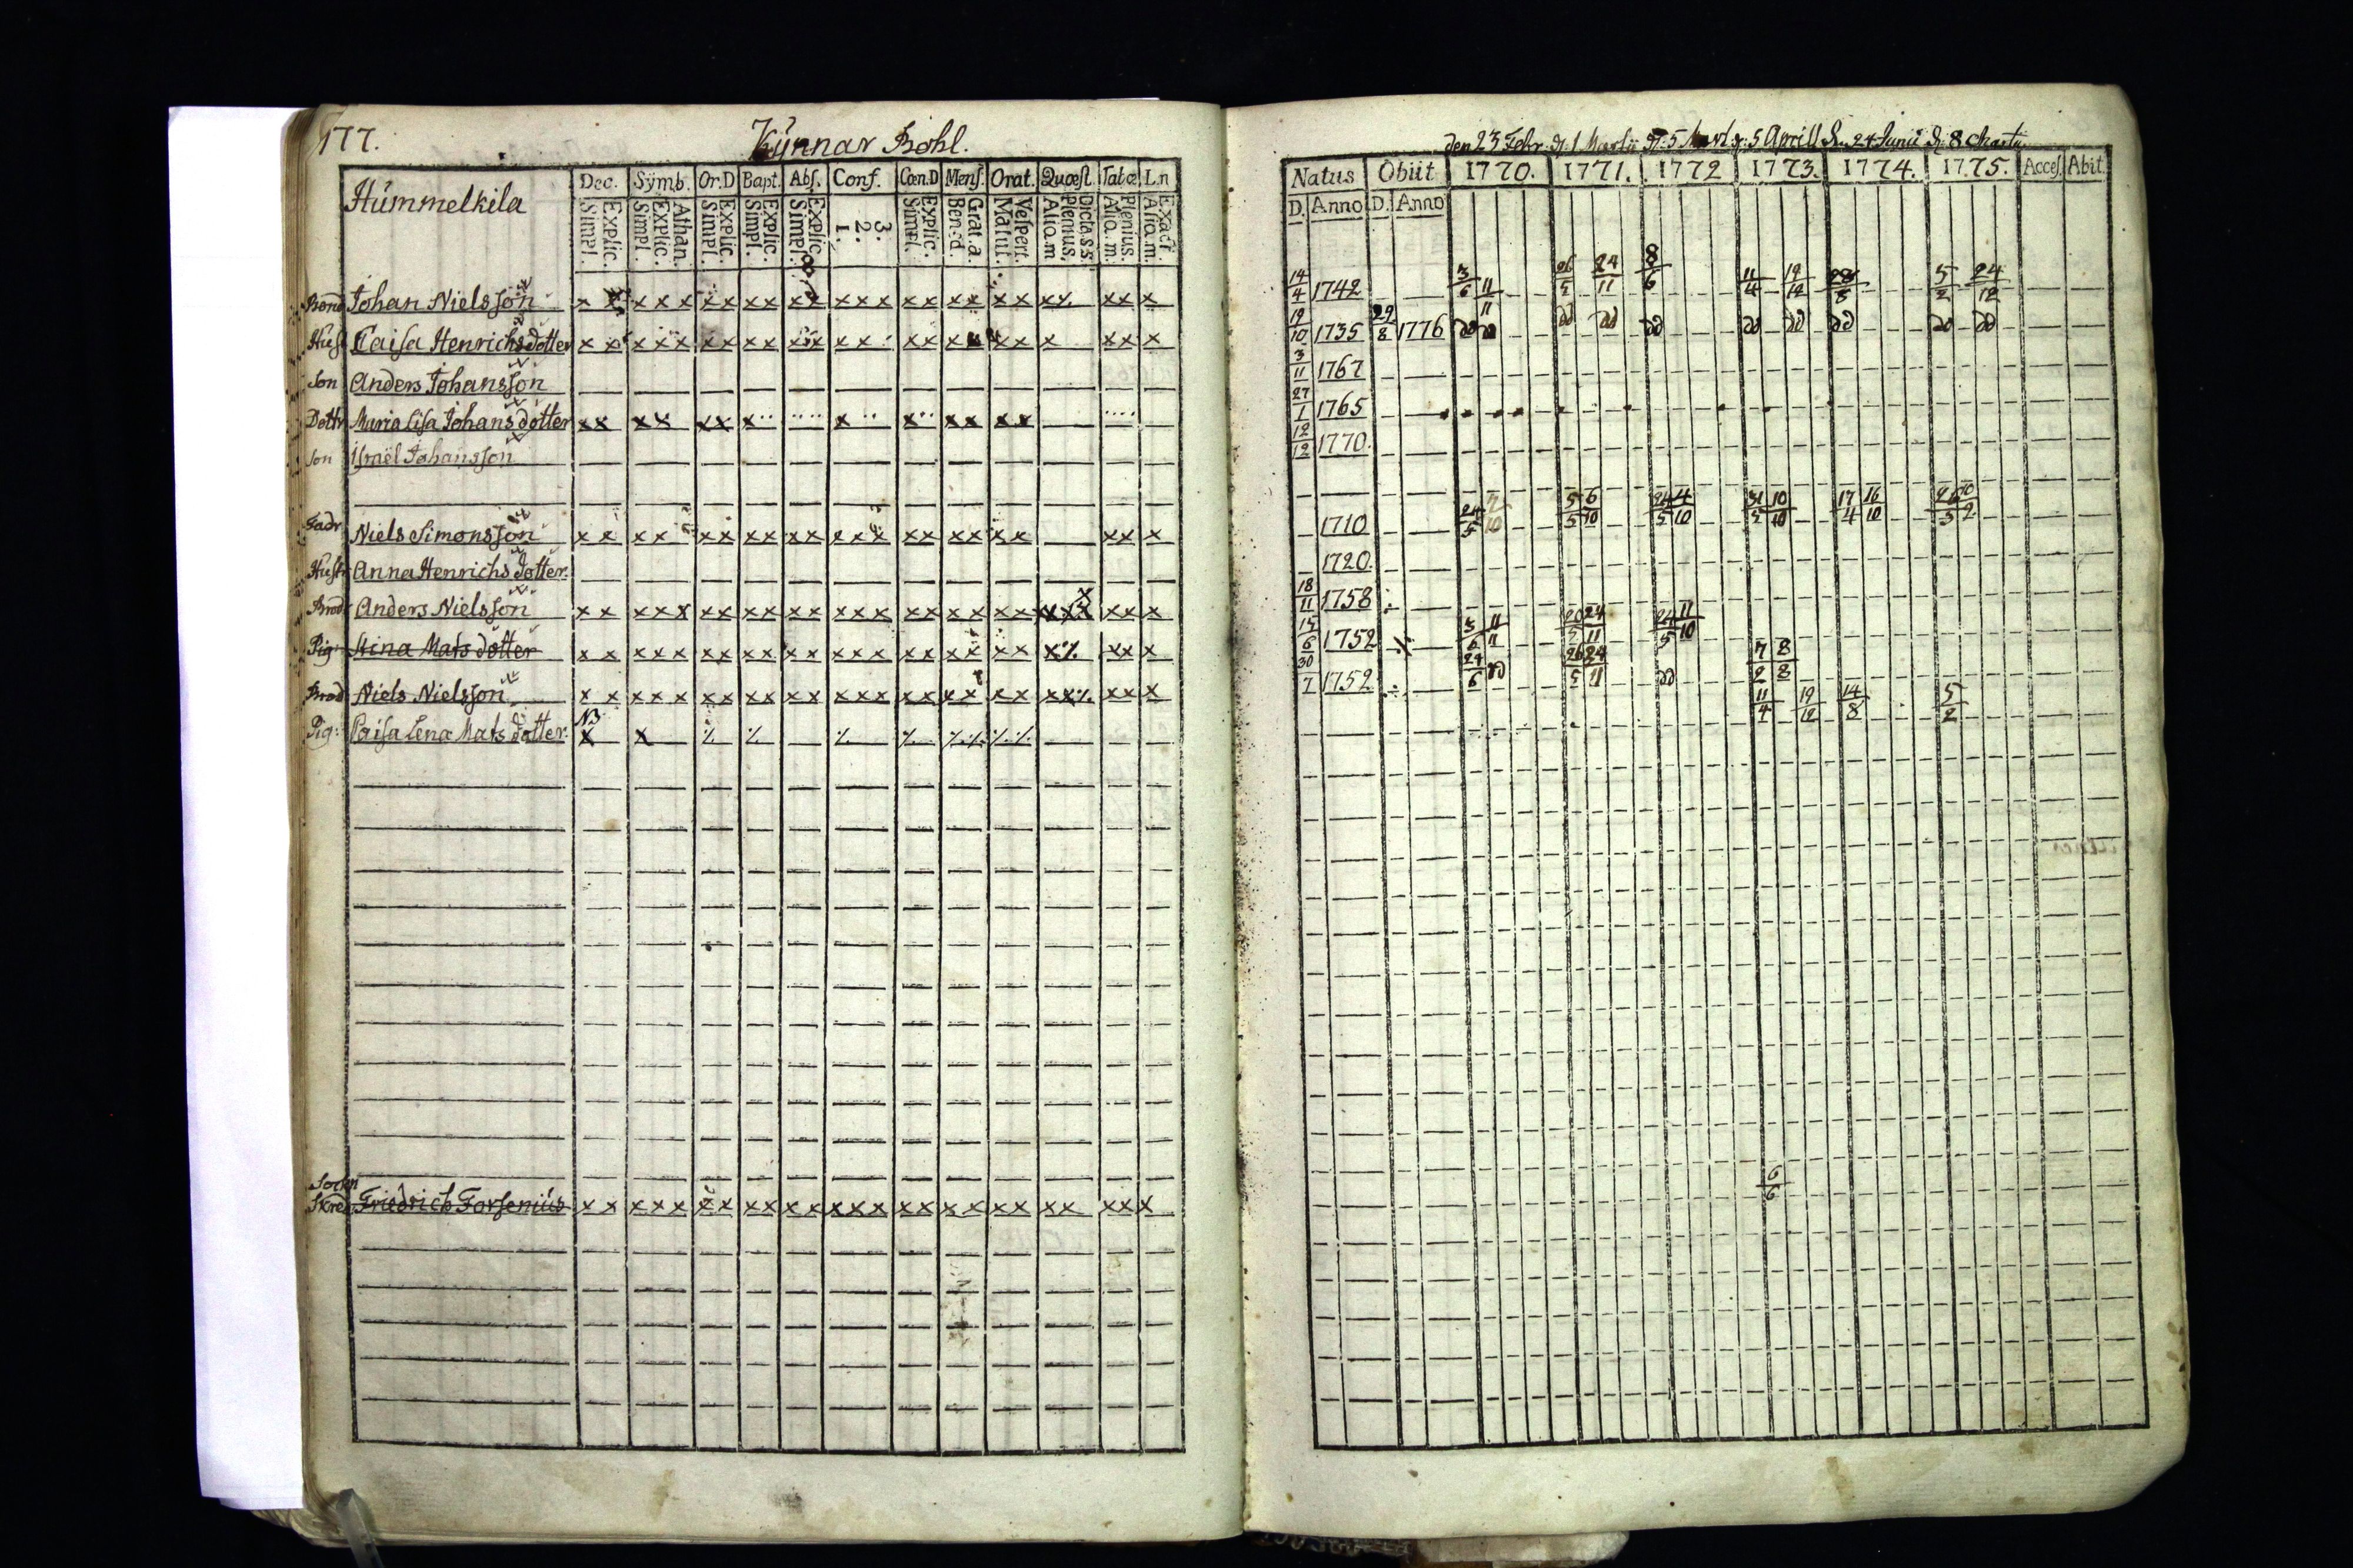 177.
Kÿnnar Bohl.
Hummelkila
Dec. Sÿmb. Or.D Bapt. Abs. Conf. Cœn.D Mens. Orat. Quæst. Tab.œ L.n
Simpl. Explic. Simpl. Explic. Athan. Simpl. Explic. Simpl. Explic. Simpl. Explic. 1. 2. 3. Simpl. Explic. Bened. Grat.a. Matut. Vespert. Alio.m Plenius. Dicta.s.s. Alio.m. Plenius. Alio.m. Exact
Bond Johan Nielsson x x x x x x x x x x x x x x x x x x x x x x x x
Hust Caisa Henrichsdotter x x x x x x x x x x x x x x x x x x x x x x
Son Anders Johansson
Dottr Maria Lisa Johansdotter x x x x x x x x x x x x x
Son Israël Johansson
Fadr Niels Simonsson x x x x x x x x x x x x x x x x x x x x x x
Hustr Anna Henrichs dotter
Brod Anders Nielsson x x x x x x x x x x x x x x x x x x x x x x x x x x
Pig: Stina Mats dotter x x x x x x x x x x x x x x x x x x x x x x x x
Brod Niels Nielsson x x x x x x x x x x x x x x x x x x x x x x x x x
Pig: Caisa Lena Mats dotter NB x x
Sockn
Skred. Friedrich Forsenius x x x x x x x x x x x x x x x x x x x x x x x x x
den 23 Febr. d. 1 Martii d. 5 d. 5 Aprill d. 24 Junii d. 8 Martii
Natus Obiit 1770. 1771. 1772 1773. 1774. 1775. Acces. Abit.
D. Anno D. Anno
14/4 1742 3/6 11/11 26/5 24/11 8/6 11/4 19/12 28/8 5/2 24/12
19/10 1735 29/8 1776 dd dd dd dd dd dd dd dd dd dd
3/11 1767
27/1 1765
12/12 1770.
1710 24/5 7/10 5/5 6/10 24/5 4/10 31/5 10/10 17/4 16/10 26/3 10/2
1720.
18/11 1758
15/6 1752 3/6 11/11 20/5 24/11 24/5 11/10
30/7 1752 24/6 dd 26/5 24/11 dd 7/2 8/8
11/4 19/12 14/8 5/2
6/6